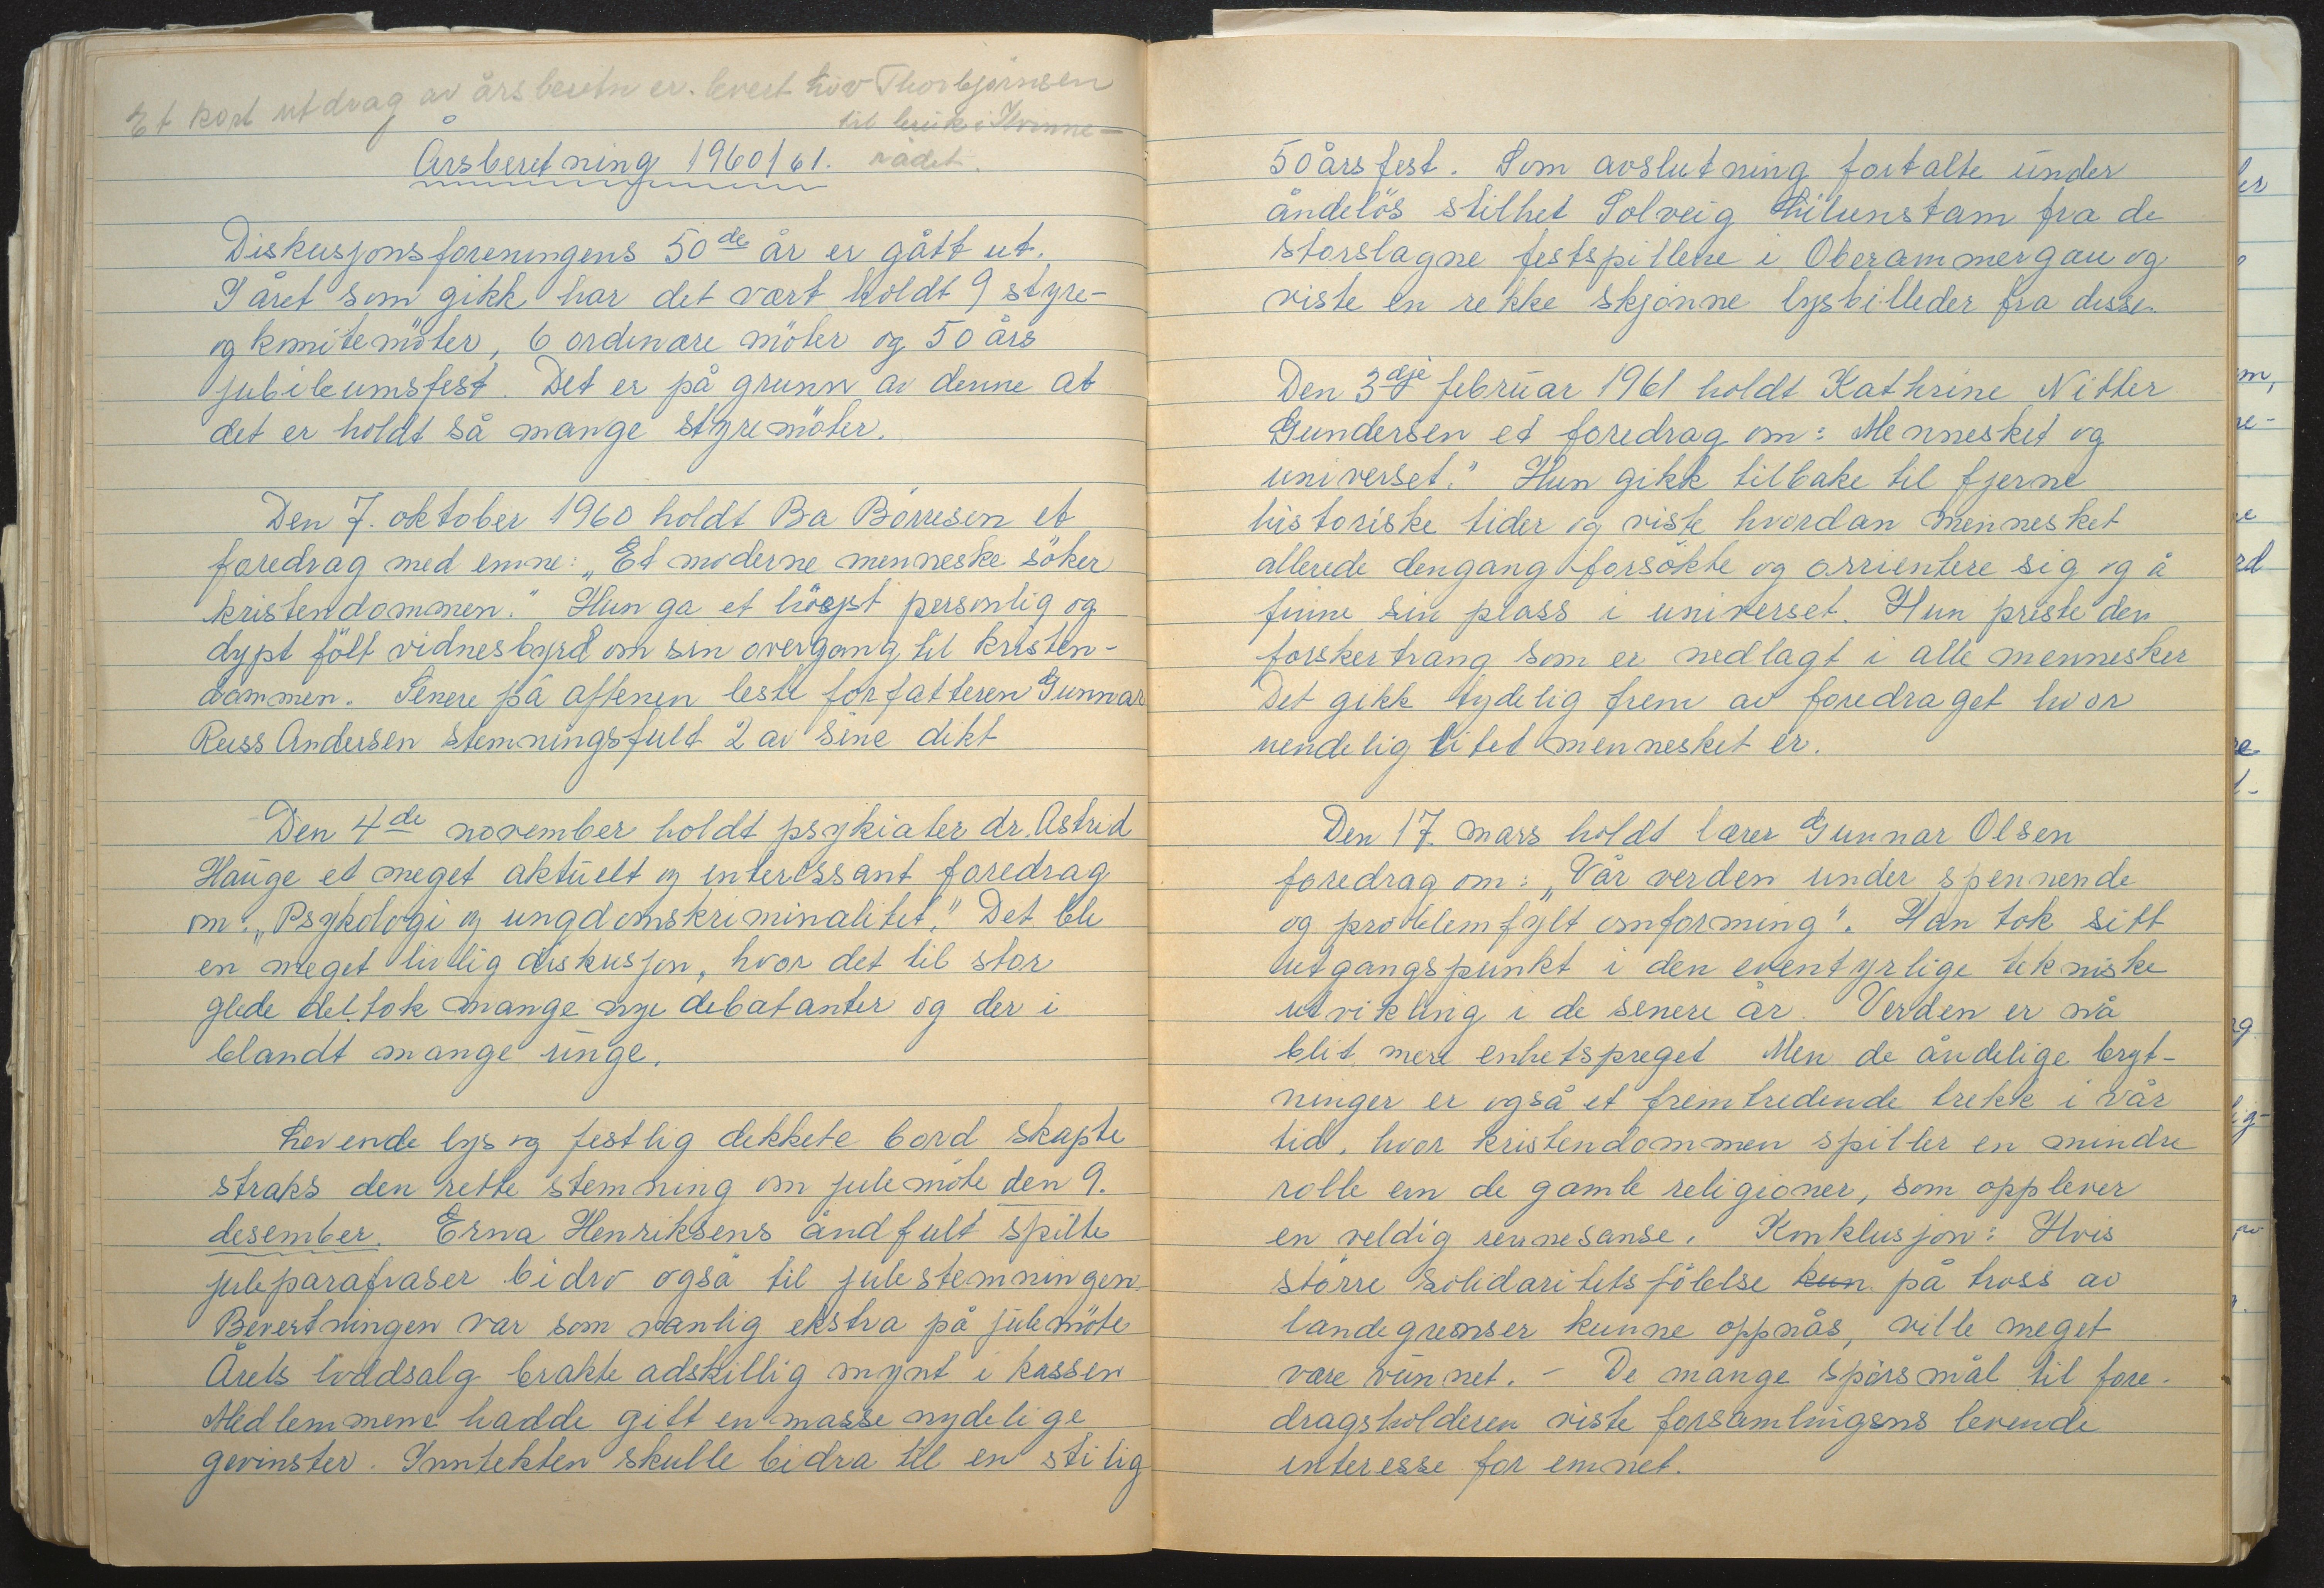 Et kort utdrag av årsberetn er. levert Liv Thorbjørnsen
til bruk i Kvinne-
rådet.
Årsberetning 1960/61.
Diskusjonsforeningens 50de år er gått ut.
I året som gikk har det vært holdt 9 styre-
og komitemöter, 6 ordinære möter og 50 års
jubileumsfest. Det er på grunn av denne at
det er holdt så mange styremöter.
Den 7. oktober 1960 holdt Ba Börresen et
foredrag med emne: „Et moderne menneske söker
kristendommen." Hun ga et höyst personlig og
dypt fölt vidnesbyrd om sin overgang til kristen-
dommen. Senere på aftenen leste forfatteren Gunnar
Reiss Andersen stemningsfult 2 av sine dikt
Den 4de november holdt psykiater dr. Astrid
Hauge et meget aktuelt og interessant foredrag
om: „Psykologi og ungdomskriminalitet." Det ble
en meget livlig diskusjon, hvor det til stor
glede deltok mange nye debatanter og der i
blandt mange unge.
Levende lys og festlig dekkete bord skapte
straks den rette stemning om julemöte den 9.
desember. Erna Henriksens åndfult spilte
juleparafraser bidro også til julestemningen.
Bevertningen var som vanlig ekstra på julemöte
Årets loddsalg brakte adskillig mynt i kassen
Medlemmene hadde gitt en masse nydelige
gevinster. Inntekten skulle bidra til en stilig
50 årsfest. Som avslutning fortalte under
åndelös stilhet Solveig Lilunstam fra de
storslagne festspillene i Oberammergau og
viste en rekke skjönne lysbilleder fra disse.
Den 3dje februar 1961 holdt Kathrine Nitter
Gundersen et foredrag om: Mennesket og
universet." Hun gikk tilbake til fjerne
historiske tider og viste hvordan mennesket
allerede dengang forsökte og orrientere sig og å
finne sin plass i universet. Hun priste den
forskertrang som er nedlagt i alle mennesker
Det gikk tydelig frem av foredraget hvor
uendelig litet mennesket er.
Den 17. mars holdt lærer Gunnar Olsen
foredrag om: „Vår verden under spennende
og problemfylt omforming". Han tok sitt
utgangspunkt i den eventyrlige tekniske
utvikling i de senere år. Verden er nå
blit mere enhetspreget Men de åndelige bryt-
ninger er også et fremtredende trekk i vår
tid, hvor kristendommen spiller en mindre
rolle enn de gamle religioner, som opplever
en veldig rennesanse. Konklusjon: Hvis
större solidaritetsfölelse kun på tross av
landegrenser kunne oppnås, ville meget
være vunnet. - De mange spörsmål til fore-
dragsholderen viste forsamlingens levende
interesse for emnet.